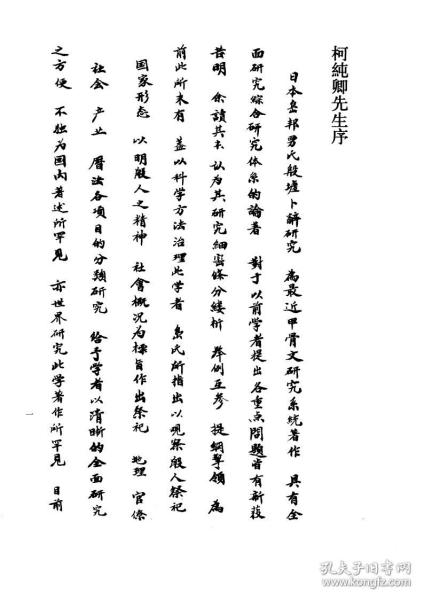 柯純卿先生序
日本岛邦男氏殷墟卜辞研究 為最近甲骨文研究系统著作 具有全
面研究综合研究体系的論著 對于以前学者提出各重点問題皆有新获
昔明 余讀其书 认为其研究細密條分縷析 举例互参 提綱挈領 為
前此所未有 盖以科学方法治理此学者 島氏所指出以观察殷人祭祀
国家形态 以明殷人之精神 社會概况为標旨作出祭祀 地理 官僚
社会 产业 曆法各项目的分题研究 给予学者以清晰的全面研究
之方便 不独为国内著述所罕見 亦世界研究此学著作所罕見 目前
一
孔夫子旧书网
kongfz.com